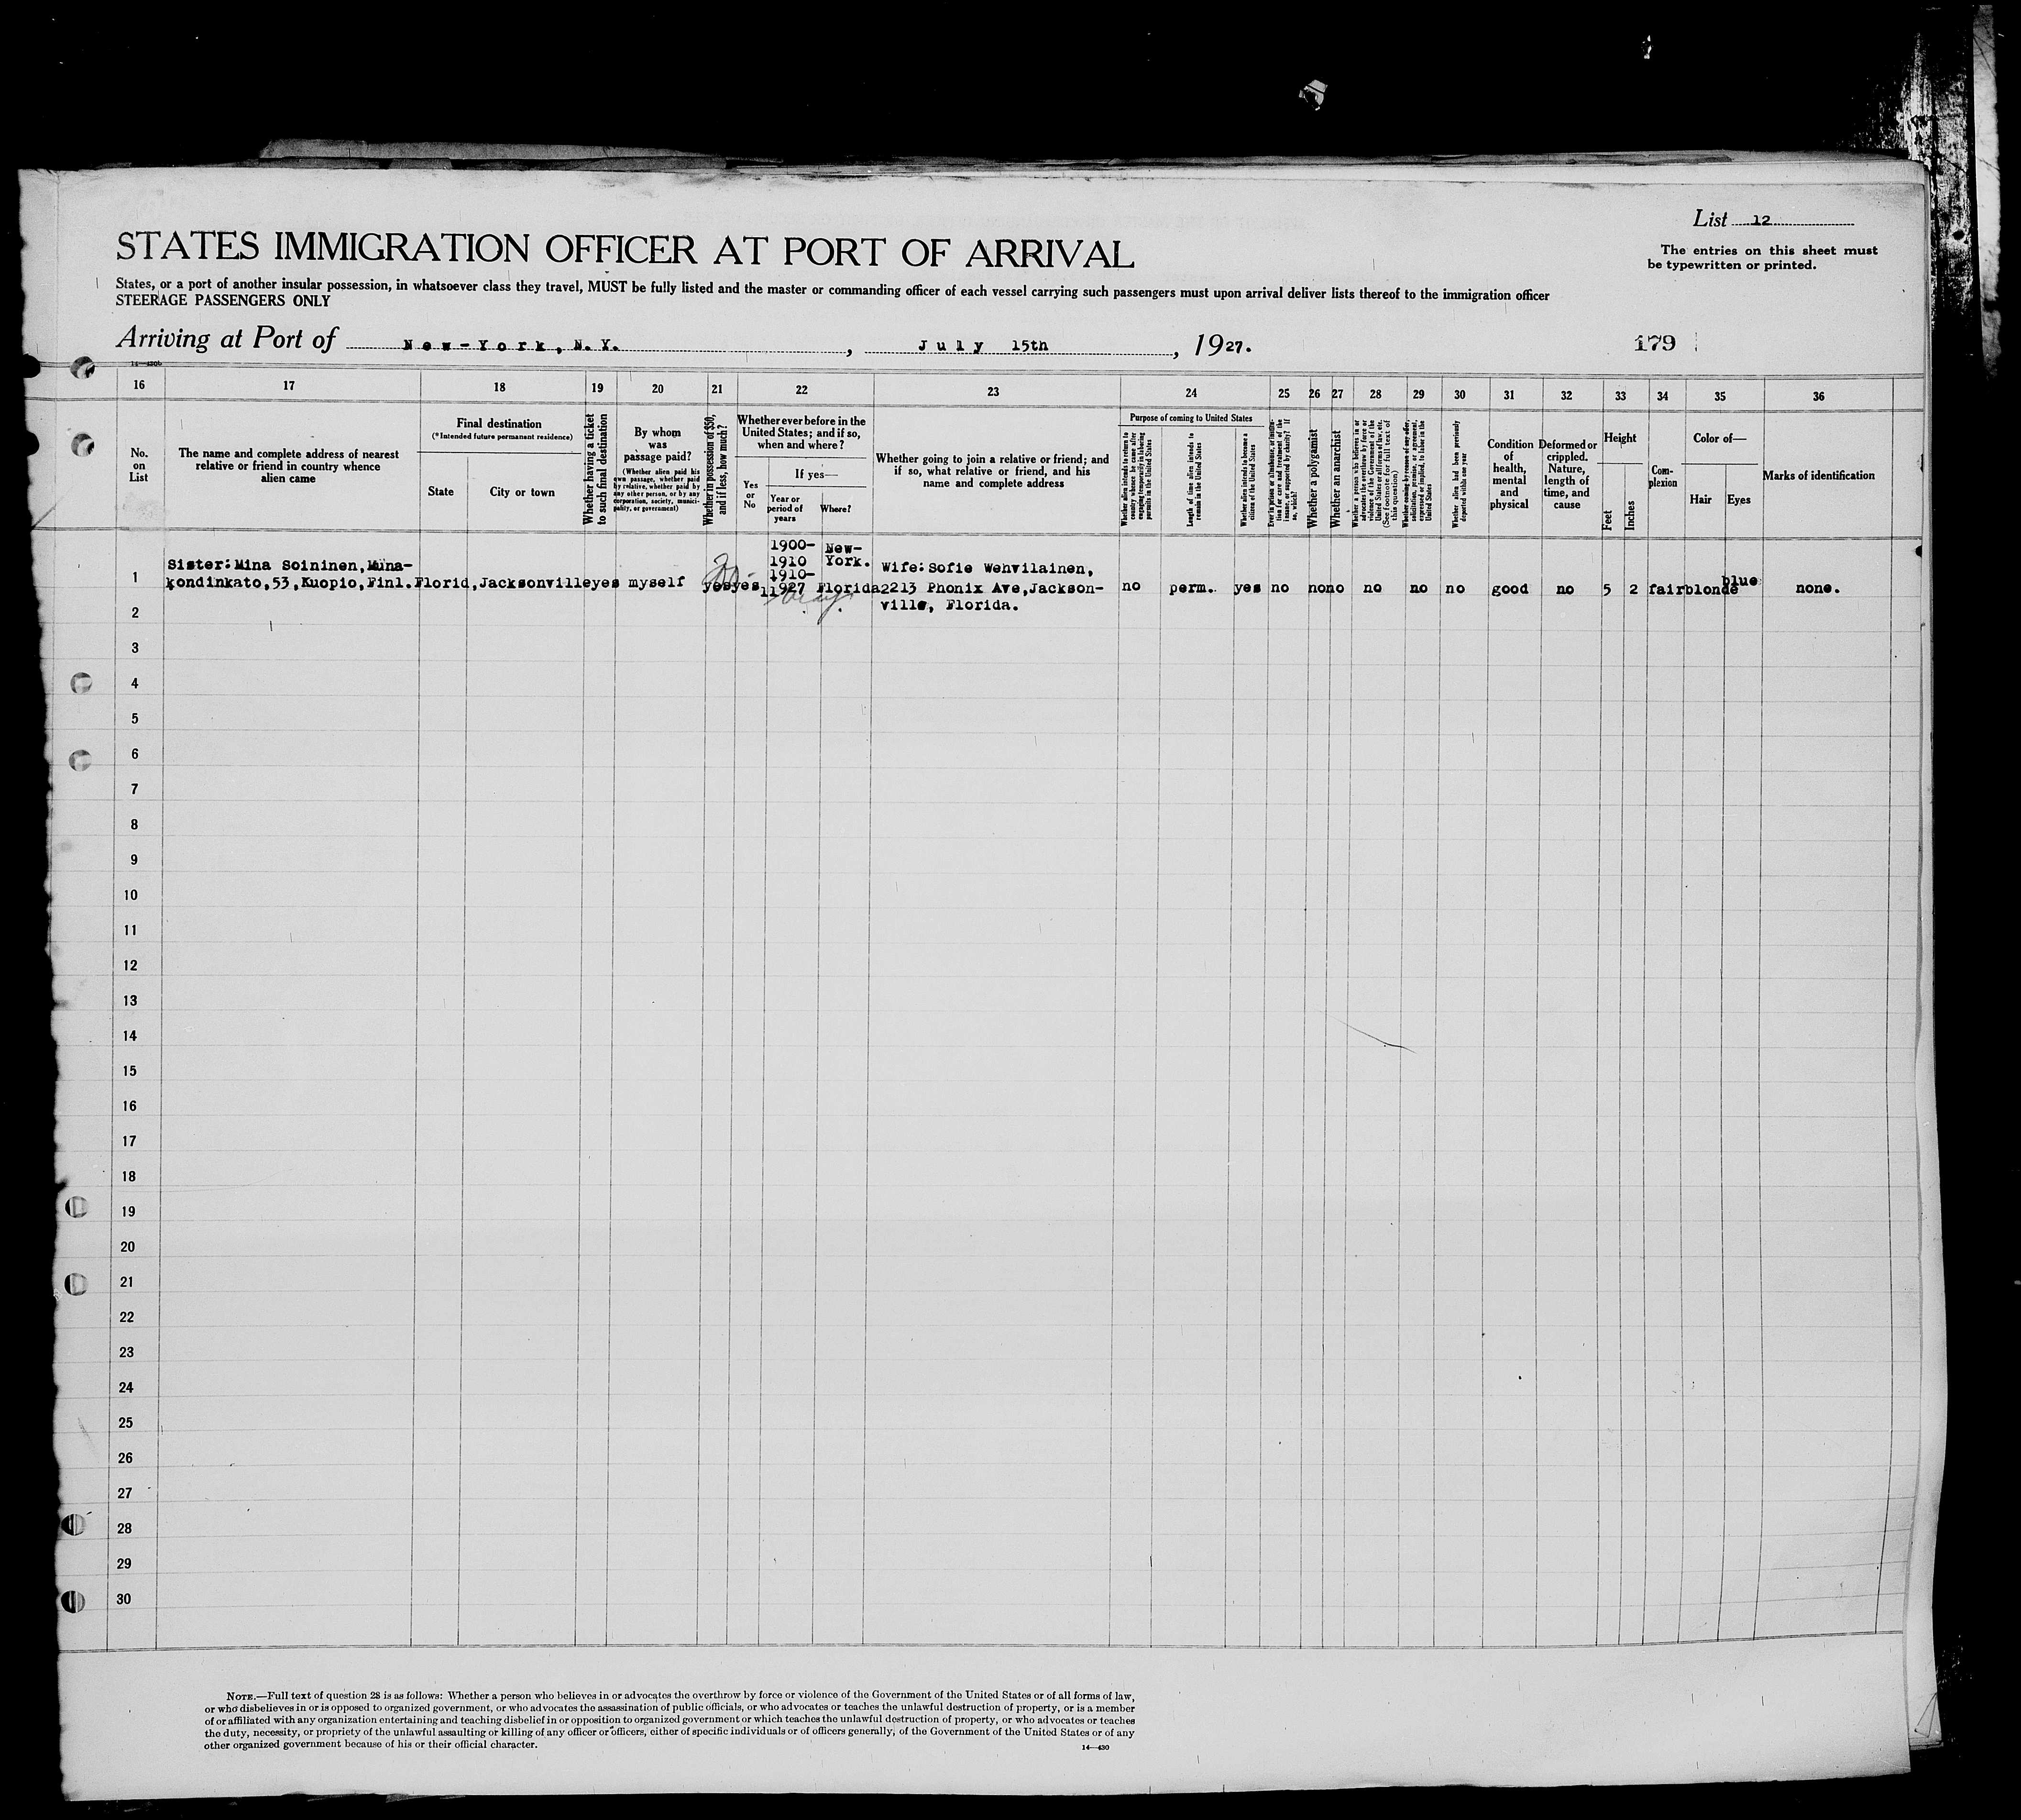 List 12
The entries on this sheet must
be typewritten or printed.
STATES IMMIGRATION OFFICER AT PORT OF ARRIVAL
States, or a port of another insular possession, in whatsoever class they travel, MUST be fully listed and the master or commanding officer of each vessel carrying such passengers must upon arrival deliver lists thereof to the immigration officer
STEERAGE PASSENGERS ONLY
Arriving at Port of New-York, N.Y., July 15th, 1927.
179
16 17 18 19 20 21 22 23 24 25 26 27 28 29 30 31 32 33 34 35 36
No.
on
List
The name and complete address of nearest
relative or friend in country whence
alien came
Final destination
(*Intended future permanent residence)
State
City or town
Whether having a ticket
to such final destination
By whom
was
passage paid?
(Whether alien paid his
own passage, whether paid
by relative, whether paid by
any other person, or by any
corporation, society, munici-
pality, or government)
Whether in possession of $50,
and if less, how much?
Whether ever before in the
United States; and if so,
when and where?
Yes
or
No
If yes—
Year or
period of
years
Where?
Whether going to join a relative or friend; and
if so, what relative or friend, and his
name and complete address
Purpose of coming to United States
Whether alien intends to return to
country whence he came after
engaging temporarily in laboring
pursuits in the United States
Length of time alien intends to
remain in the United States
Whether alien intends to become a
citizen of the United States
Ever in prison or almshouse, or institu-
tion for care and treatment of the
insane, or supported by charity? If
so, which?
Whether a polygamist
Whether an anarchist
Whether a person who believes in or
advocates the overthrow by force or
violence of the Government of the
United States or all forms of law, etc.
(See footnote for full text of
this question)
Whether coming by reason of any offer,
solicitation, promise, or agreement,
expressed or implied, to labor in the
United States
Whether alien had been previously
deported within one year
Condition
of
health,
mental
and
physical
Deformed or
crippled.
Nature,
length of
time, and
cause
Height
Feet
Inches
Com-
plexion
Color of—
Hair
Eyes
Marks of identification
1900- New-
1910 York.
Sister:Mina Soininen,Muna- 1910- Wife:Sofie Wehvilainen,
1 kondinkato,53,Kuopio,Finl. Florid,Jacksonville yes myself yes yes 1927 Florida 2213 Phonix Ave,Jackson- no perm. yes no no no no no no good no 5 2 fair blonde blue none.
2 ville, Florida.
3
4
5
6
7
8
9
10
11
12
13
14
15
16
17
18
19
20
21
22
23
24
25
26
27
28
29
30
NOTE.—Full text of question 28 is as follows: Whether a person who believes in or advocates the overthrow by force or violence of the Government of the United States or of all forms of law,
or who disbelieves in or is opposed to organized government, or who advocates the assassination of public officials, or who advocates or teaches the unlawful destruction of property, or is a member
of or affiliated with any organization entertaining and teaching disbelief in or opposition to organized government or which teaches the unlawful destruction of property, or who advocates or teaches
the duty, necessity, or propriety of the unlawful assaulting or killing of any officer or officers, either of specific individuals or of officers generally, of the Government of the United States or of any
other organized government because of his or their official character.
14—430